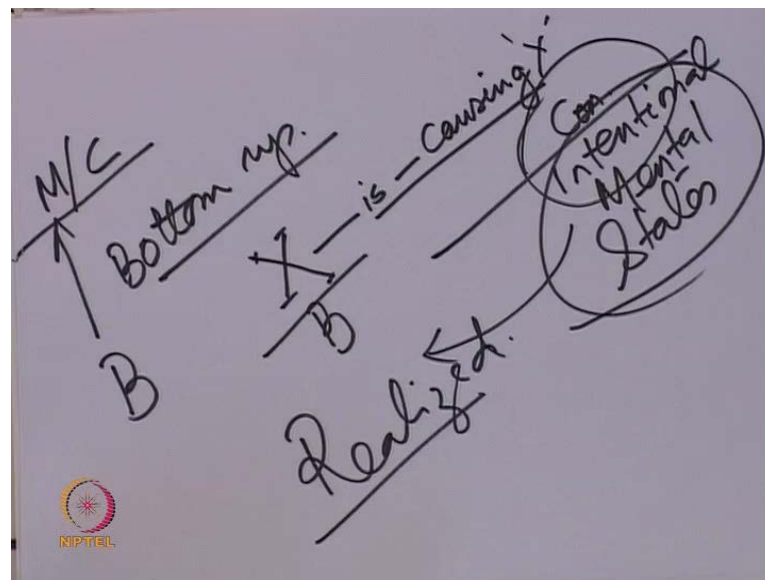 M/C
B
Bottom up.
X – is – Causing 'Y'
B
Con.
Intentional
Mental
States
Realized.
NPTEL